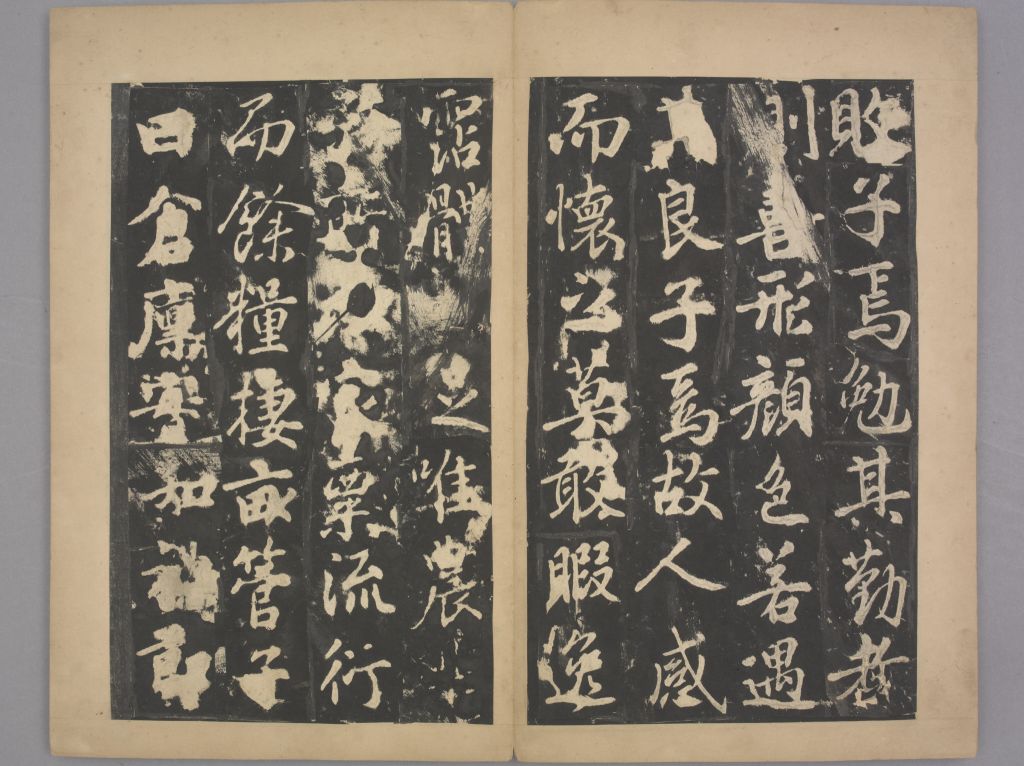 敗子焉勉其勤者
則喜形顏色若遇
良子焉故人感
而懷之莫敢暇逸
霑體之唯農
家粟流衍
而餘糧棲畝管子
曰倉廩實知禮節